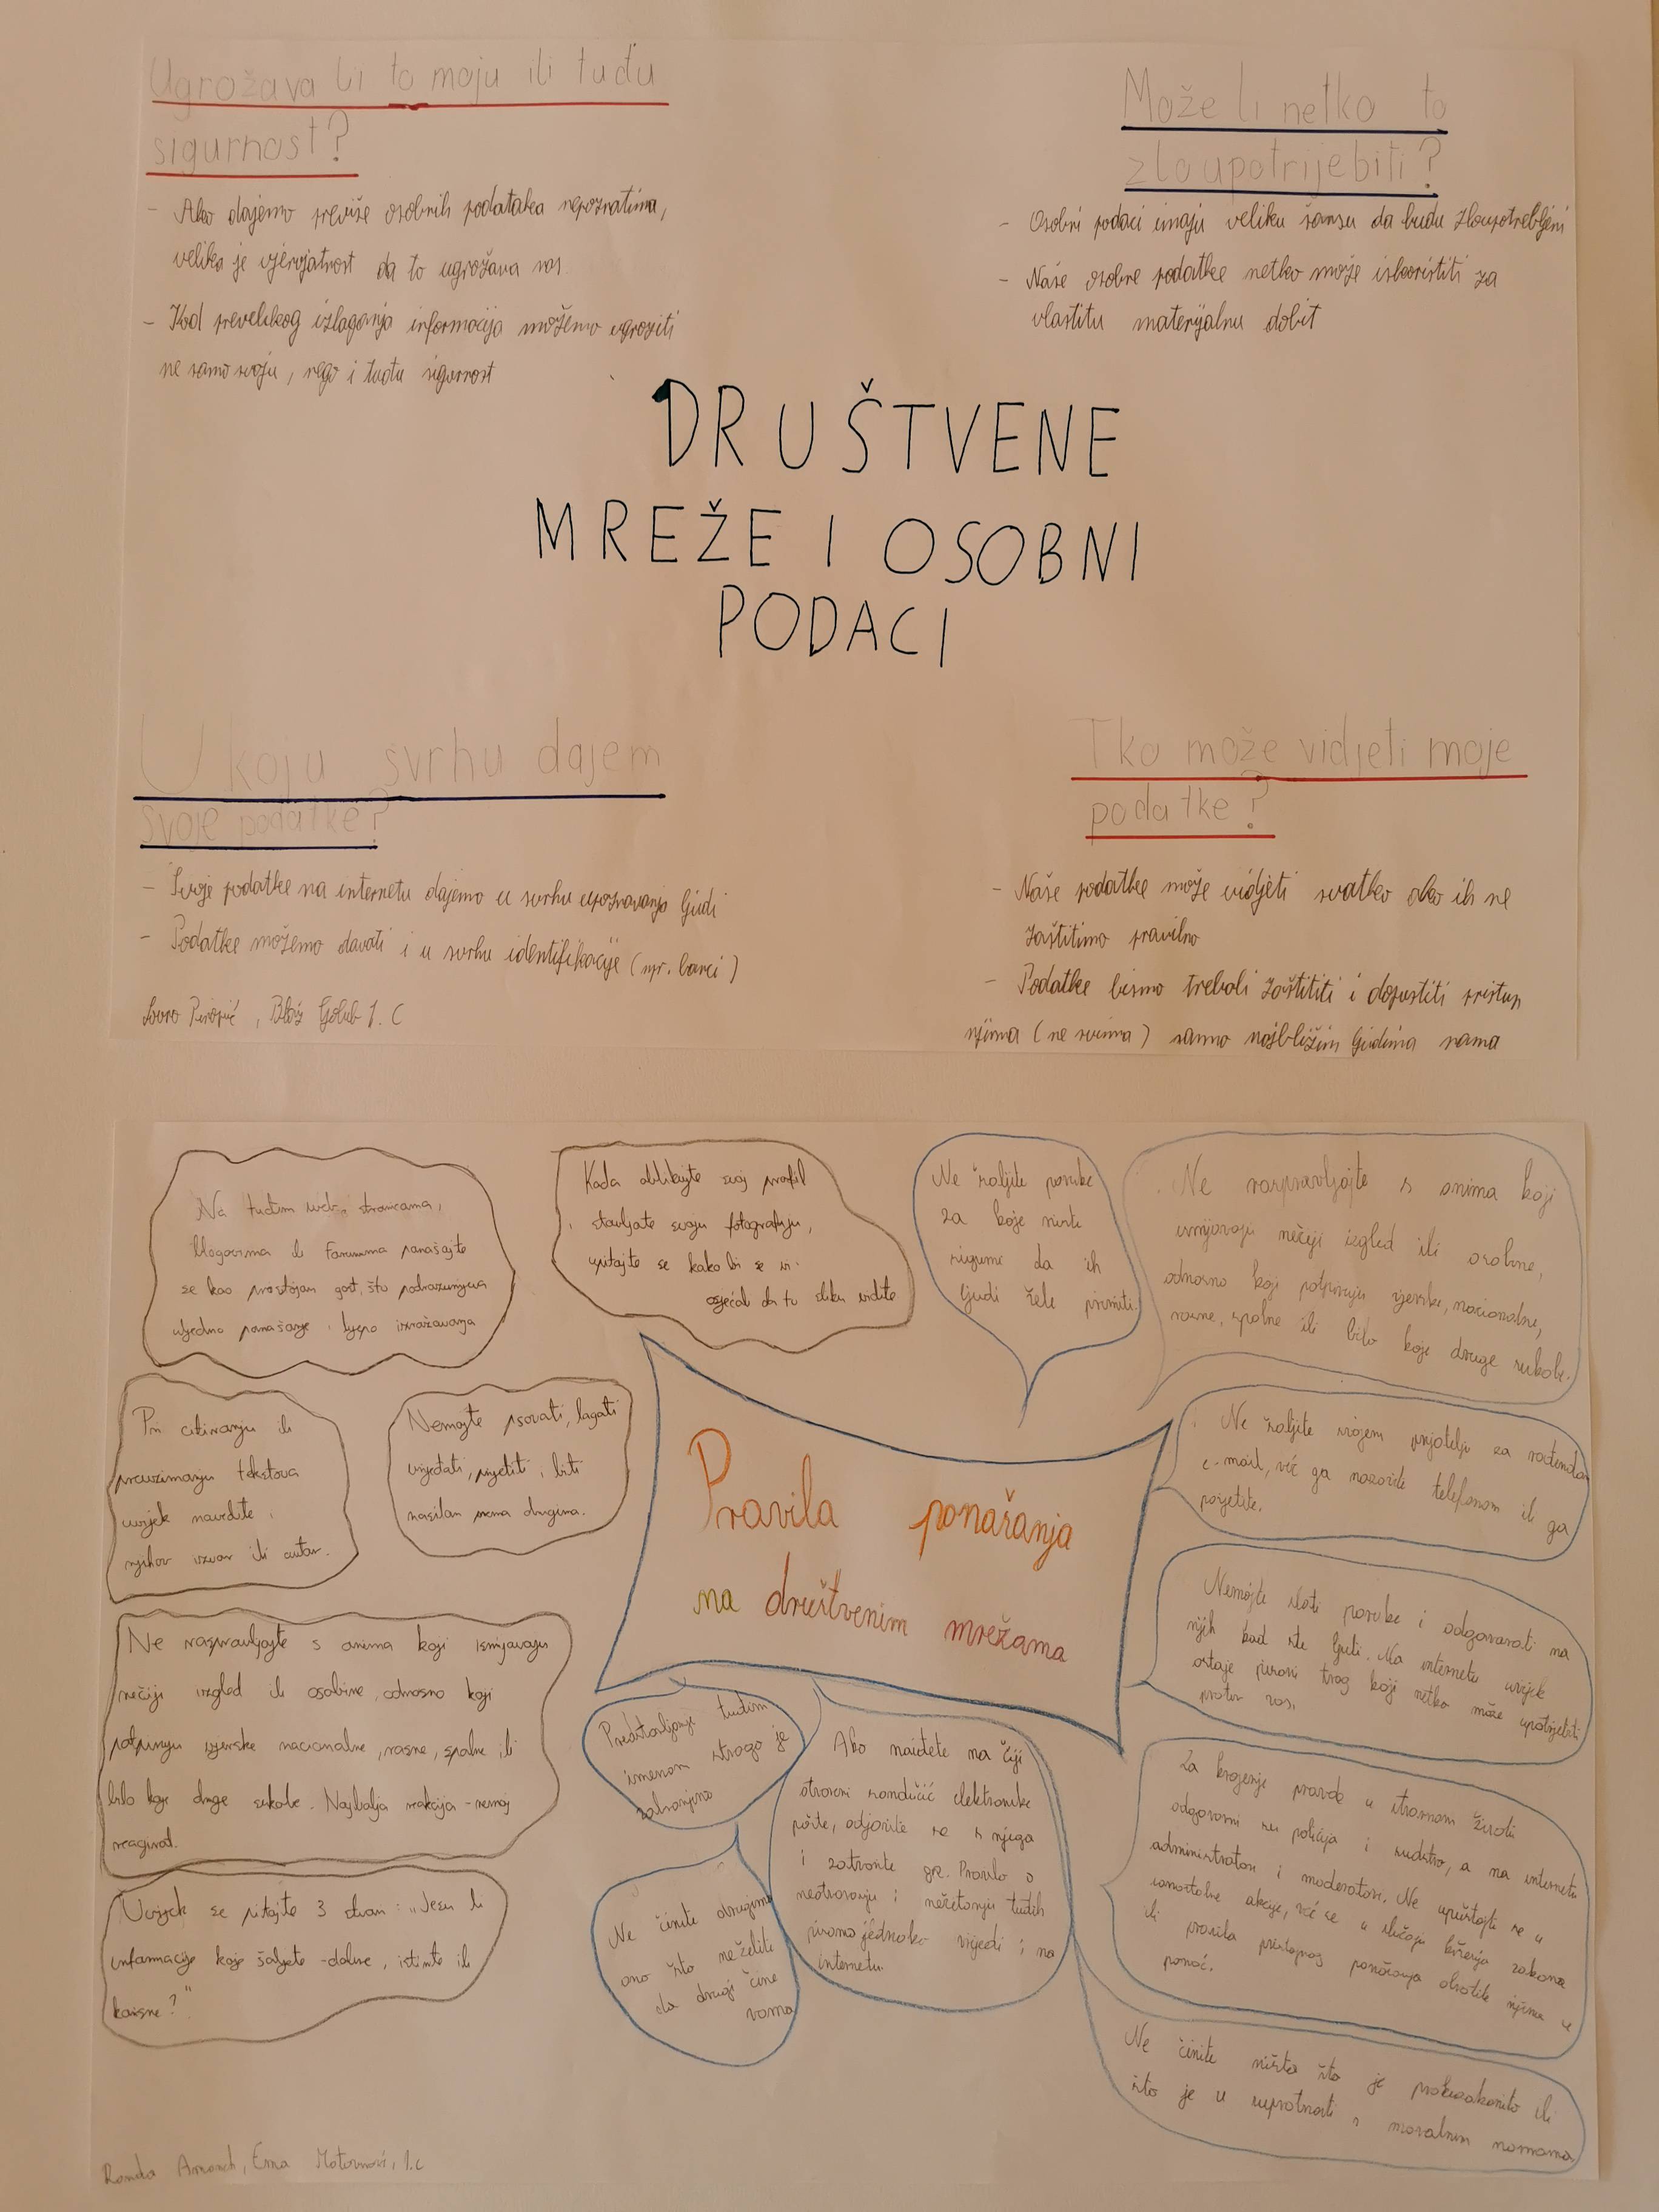 Ugrožava li to moju ili tuđu
sigurnost?
- Ako dajemo previše osobnih podataka nepoznatima,
velika je vjerojatnost da to ugrožava nas.
- Kod prevelikog izlaganja informacija možemo ugroziti
ne samo svoju, nego i tuđu sigurnost
Može li netko to
zloupotrijebiti?
- Osobni podaci imaju veliku šansu da budu zloupotrebljeni
- Naše osobne podatke netko može iskoristiti za
vlastitu materijalnu dobit
DRUŠTVENE
MREŽE I OSOBNI
PODACI
U koju svrhu dajem
svoje podatke?
- Svoje podatke na internetu dajemo u svrhu upoznavanja ljudi
- Podatke možemo davati i u svrhu identifikacije (npr. banci)
Lovro, Blaž Golub 1. C
Tko može vidjeti moje
podatke?
- Naše podatke može vidjeti svatko ako ih ne
zaštitimo pravilno
- Podatke bismo trebali zaštititi i dopustiti pristup
njima (ne svima) samo najbližim ljudima nama
Na tuđim web stranicama,
blogovima ili forumima ponašajte
se kao pristojan gost, što podrazumijeva
uljudno ponašanje i lijepo izražavanja
Kada oblikujte svoj profil
i stavljate svoju fotografiju,
upitajte se kako bi se vi
osjećali da tu sliku vidite
Ne šaljite poruke
za koje niste
sigurni da ih
ljudi žele primiti.
Ne raspravljajte s onima koji
ismijavaju nečiji izgled ili osobine,
odnosno koji potpiruju vjerske, nacionalne,
rasne, spolne ili bilo koje druge sukobe.
Pri citiranju ili
preuzimanju tekstova
uvijek navedite
njihov izvor ili autor.
Nemojte psovati, lagati
vrijeđati, prijetiti, biti
nasilan prema drugima.
Pravila ponašanja
na društvenim mrežama
Ne šaljite svojem prijatelju za rođendan
e-mail, već ga nazovite telefonom ili ga
posjetite.
Nemojte slati poruke i odgovarati na
njih kad ste ljuti. Na internetu uvijek
ostaje pisani trag koji netko može upotrijebiti
protiv vas.
Ne raspravljajte s onima koji ismijavaju
nečiji izgled ili osobine, odnosno koji
potpiruju vjerske nacionalne, rasne, spolne ili
bilo koje druge sukobe. Najbolja reakcija - nemoj
reagirat.
Predstavljanje tuđim
imenom strogo je
zabranjeno
Ako naiđete na čiji
otvoreni sandučić elektronike
pošte, odjavite se s njega
i zatvorite ga. Pravilo o
neotvaranju i nečitanju tuđih
pisama jednako vrijedi i na
internetu.
Za krojenje pravde u stvarnom životu
odgovorni su policija i sudstvo, a na internetu
administratori i moderatori. Ne upuštajte se u
samostalne akcije, već se u slučaju kršenja zakona
ili pravila pristojnog ponašanja obratite njima u
pomoć.
Uvijek se pitajte 3 stvari: „Jesu li
informacije koje šaljete - dobre, istinite ili
korisne?"
Ne činite drugima
ono što neželite
da drugi čine
vama
Ne činite ništa što je protuzakonito ili
što je u suprotnosti s moralnim normama
Ema, 1.c